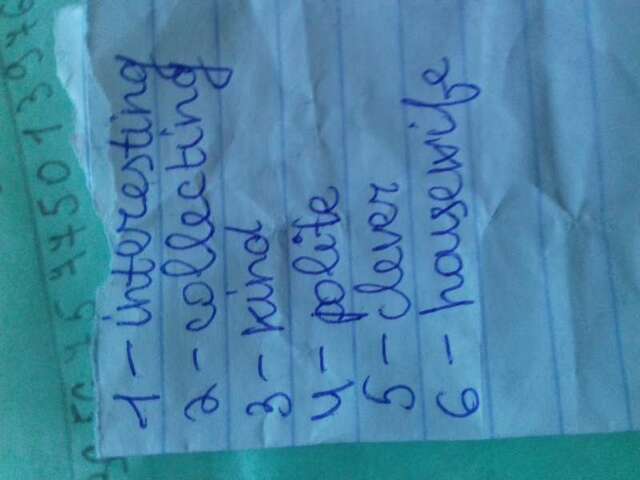 1 - interesting
2 - collecting
3 - kind
4 - polite
5 - clever
6 - housewife